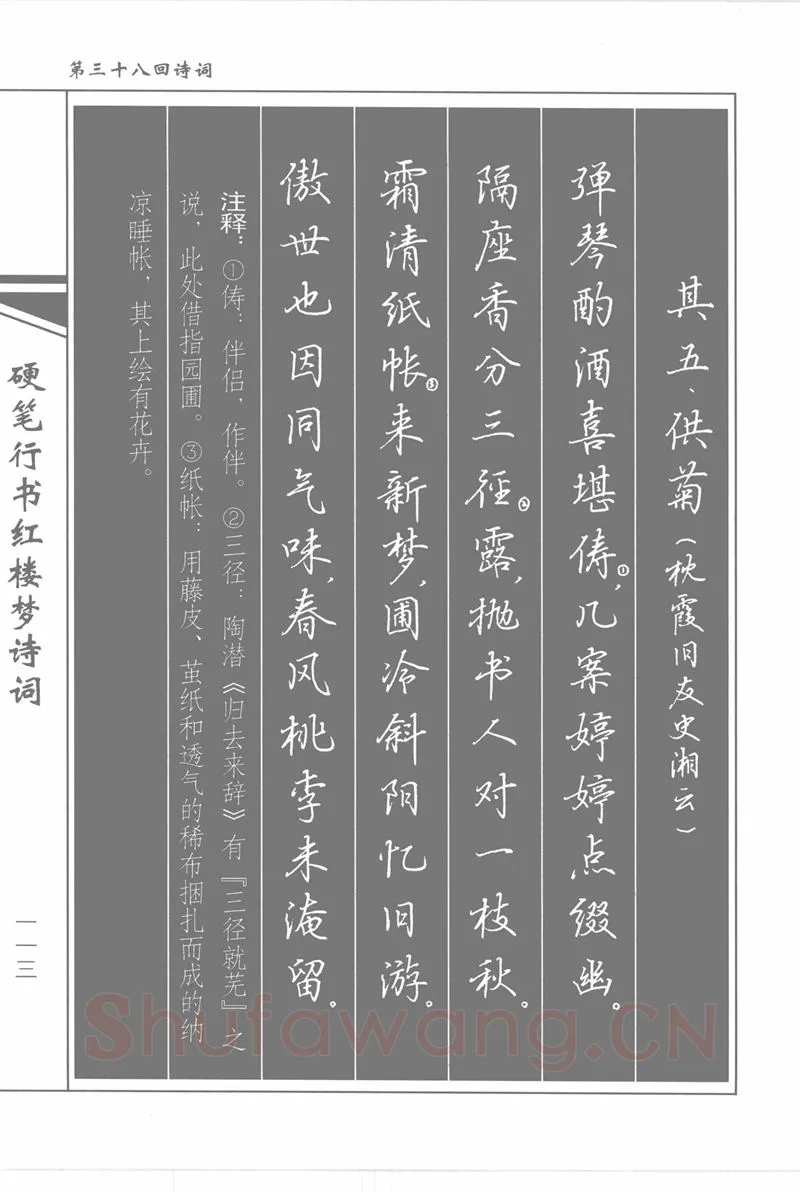 第三十八回诗词
其五、供菊(枕霞旧友史湘云)
弹琴酌酒喜堪俦①,几案婷婷点缀幽。
隔座香分三径②露,抛书人对一枝秋。
霜清纸帐③来新梦,圃冷斜阳忆旧游。
傲世也因同气味,春风桃李未淹留。
注释:①俦:伴侣,作伴。②三径:陶潜《归去来辞》有『三径就芜』之
说,此处借指园圃。③纸帐:用藤皮、茧纸和透气的稀布捆扎而成的纳
凉睡帐,其上绘有花卉。
硬笔行书红楼梦诗词
一一三
Shufawang.CN